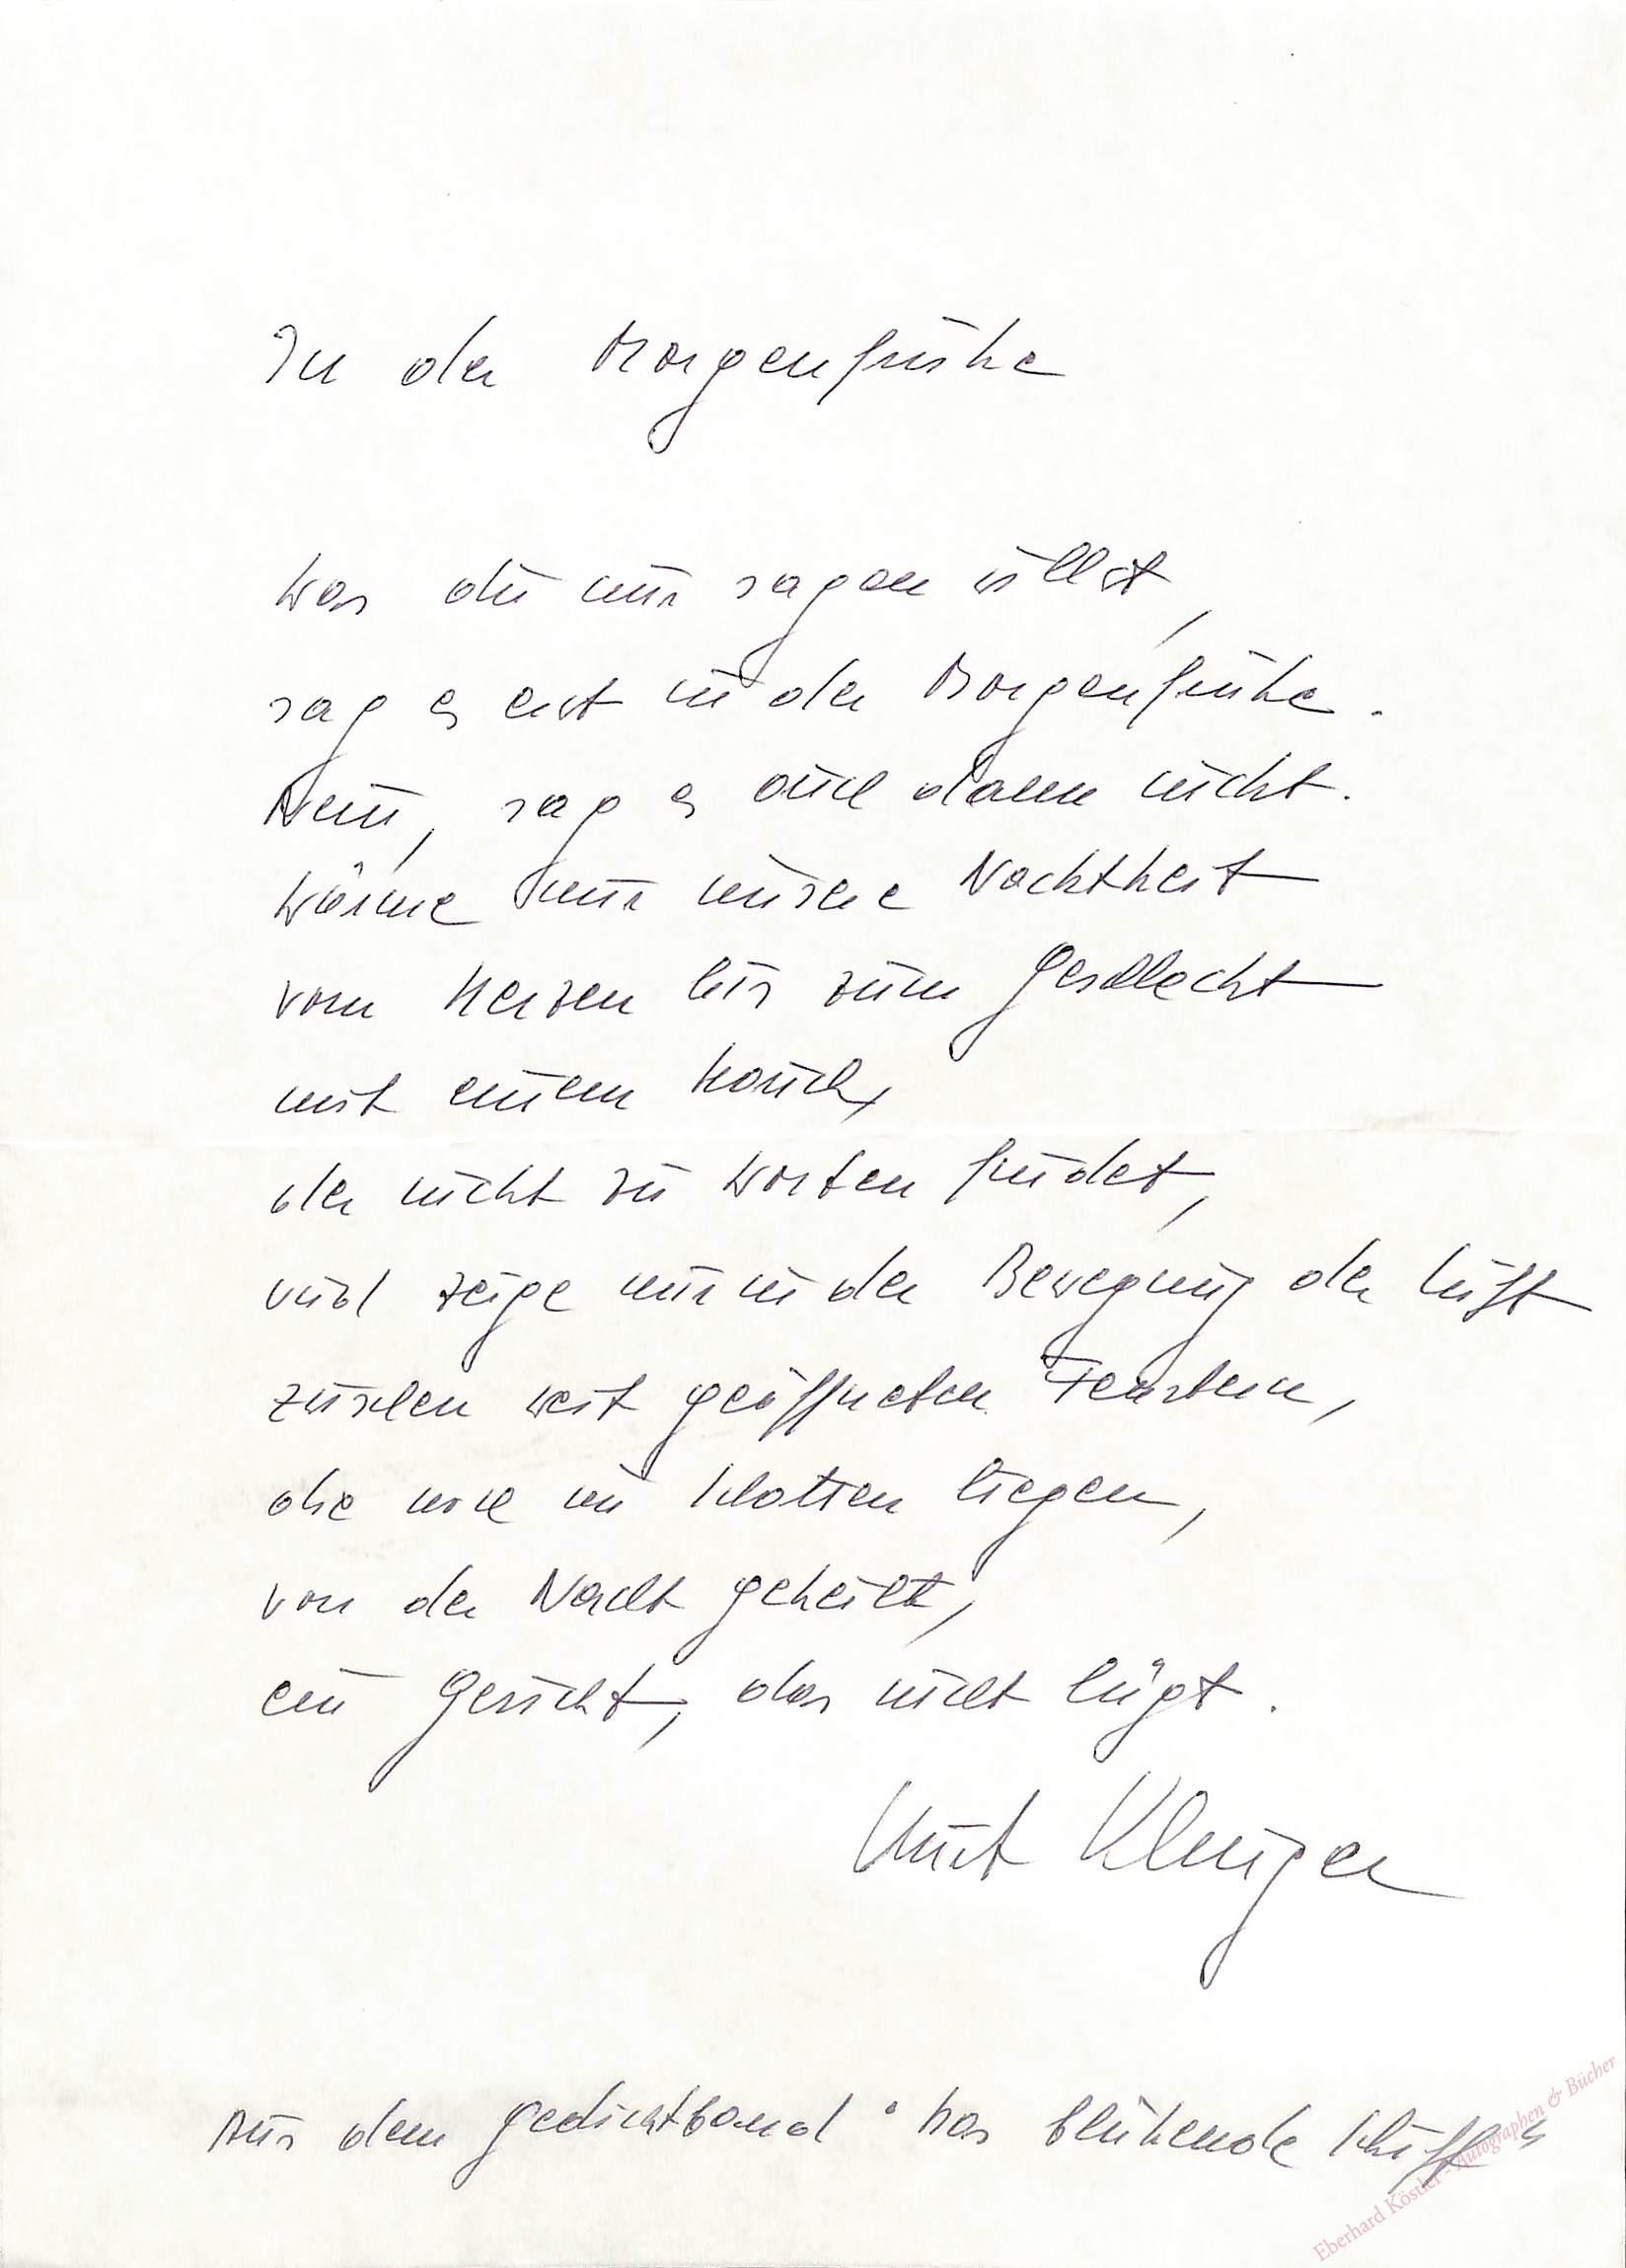 In der Morgenfrühe
Was du mir sagen willst,
sag es erst in der Morgenfrühe.
Nein, sag es auch dann nicht.
Wärme mir unsere Nacktheit
vom Herzen bis zum Geschlecht
mit einem Hauch,
der nicht zu Worten findet,
und zeige mir in der Bewegung der Luft
zwischen weit geöffneten Fenstern,
die noch im Schatten liegen,
von der Nacht geheilt,
ein Gesicht, das nicht lügt.
Kurt Klinger
Aus dem Gedichtband "Das blühende Schiff"
Eberhard Köstler - Autographen & Bücher